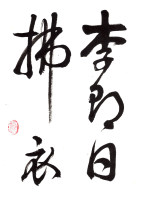 李即日
拂衣